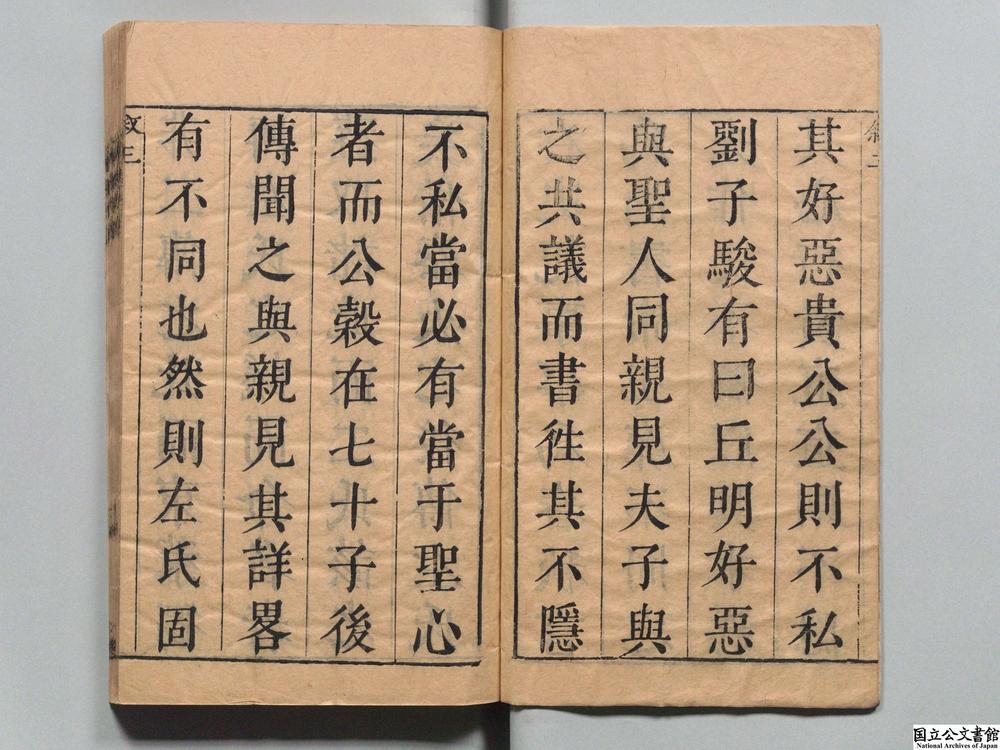 其好惡貴公公則不私
劉子駿有曰丘明好惡
與聖人同親見夫子與
之共議而書徃其不隱
不私當必有當于聖心
者而公穀在七十子後
傳聞之與親見其詳畧
有不同也然則左氏固
敘三
国立公文書館
National Archives of Japan